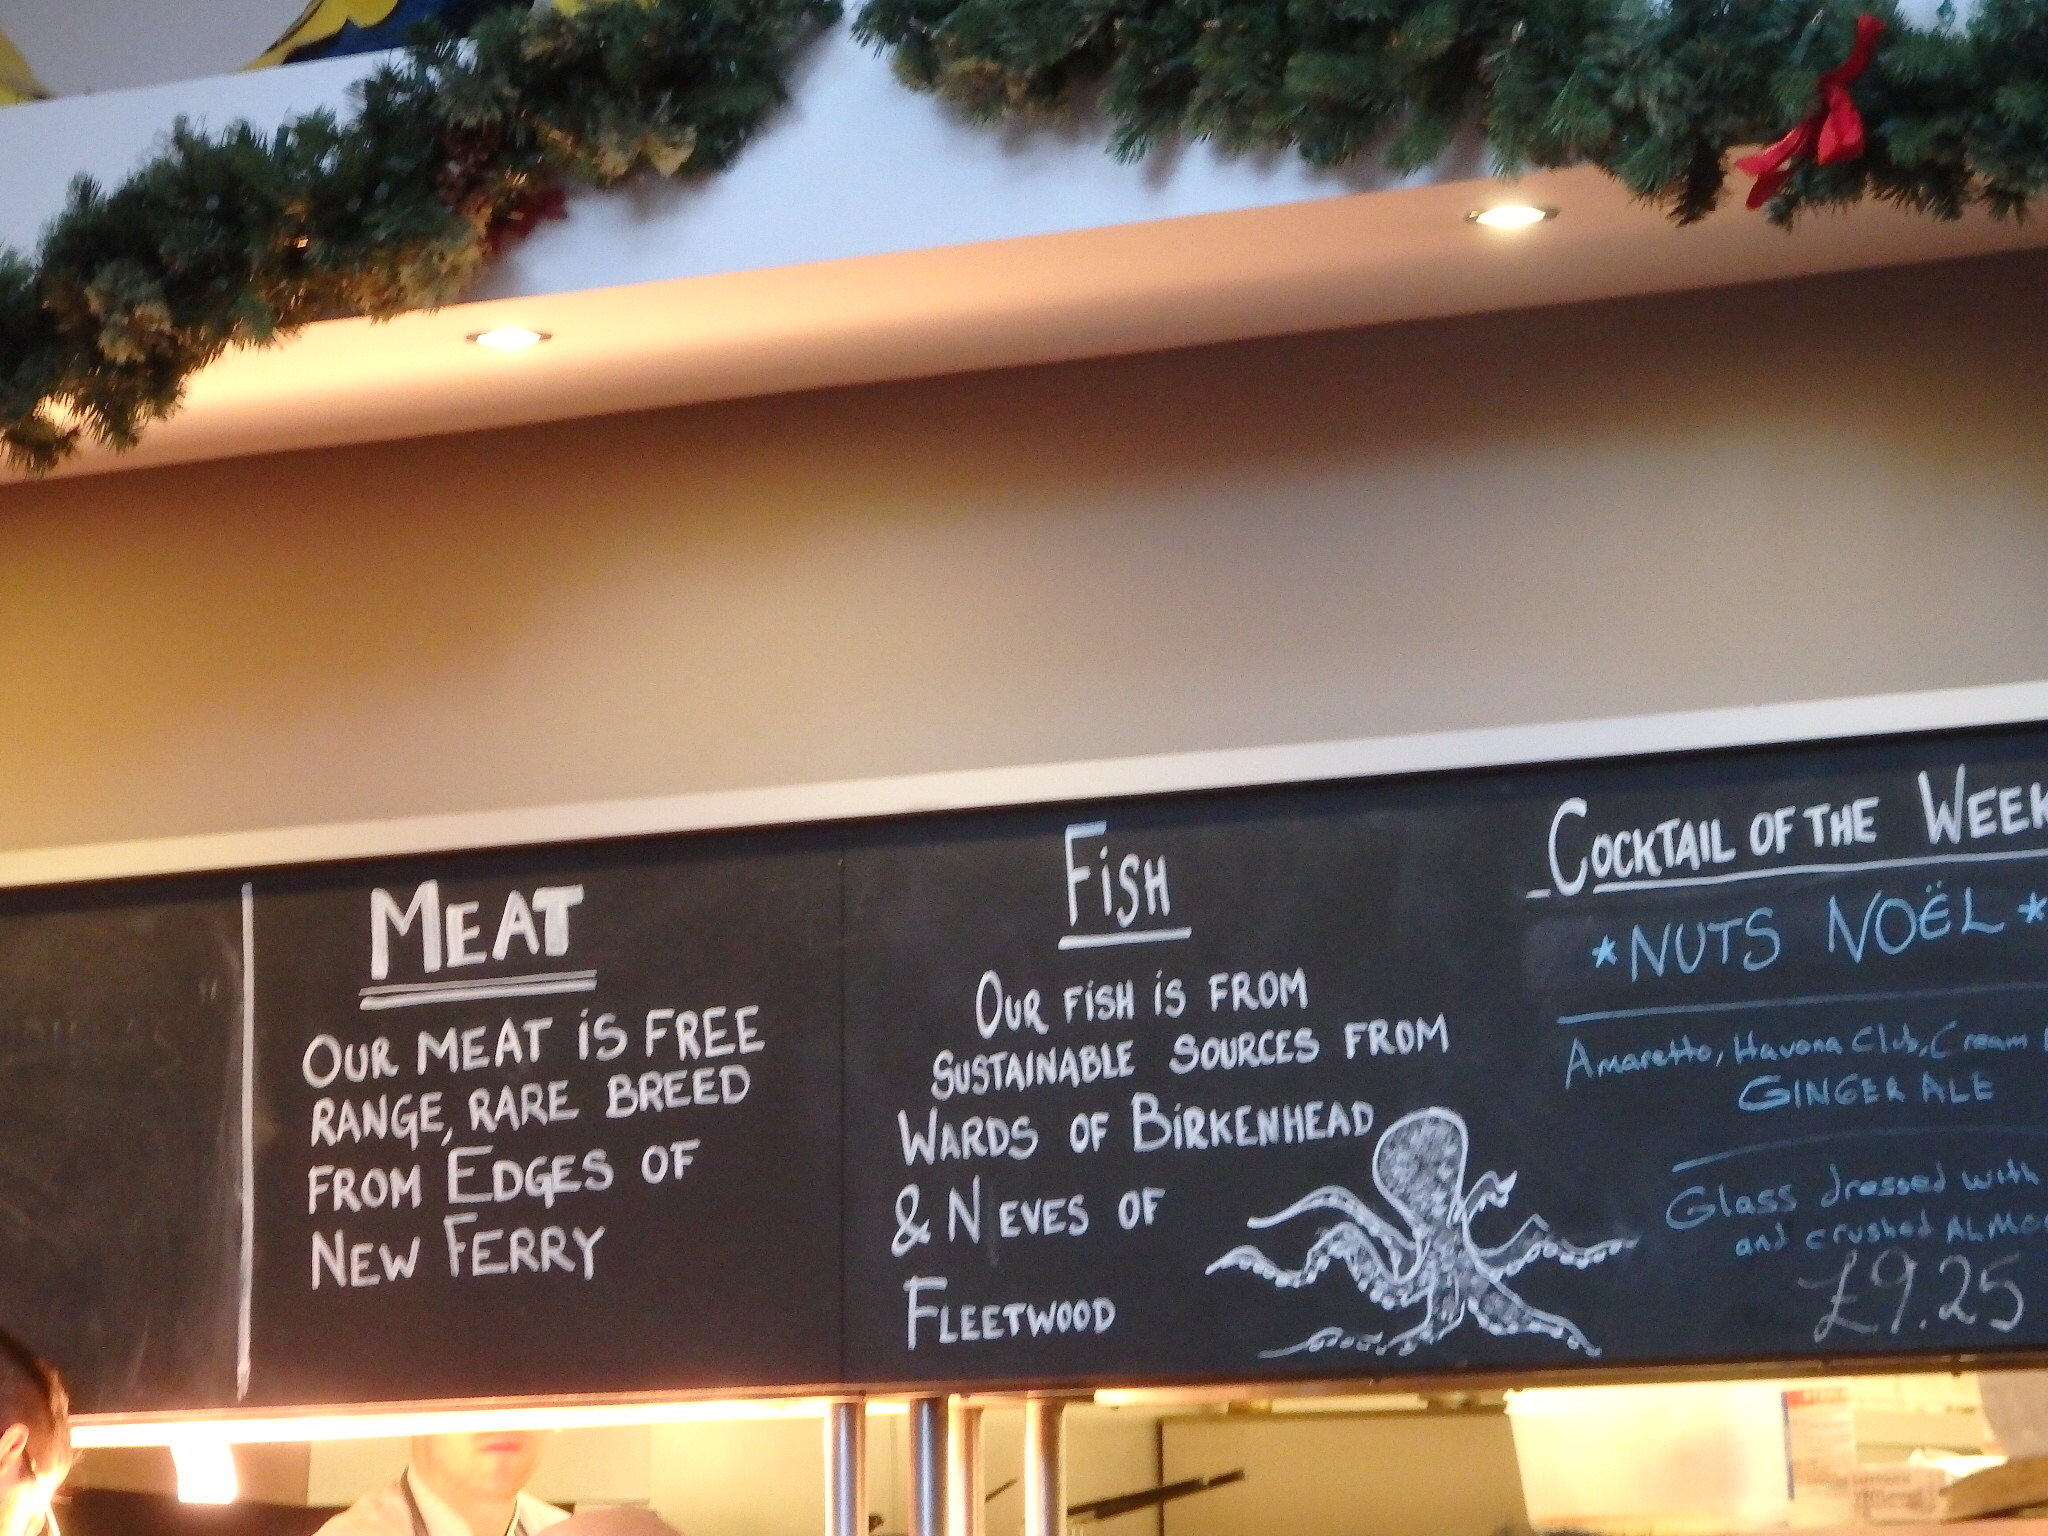 MEAT
OUR MEAT iS FREE
RANGE, RARE BREED
FROM EDGES OF
NEW FERRY
FiSH
OUR FiSH iS FROM
SUSTAINABLE SOURCES FROM
WARDS OF BiRKENHEAD
& NEVES OF
FLEETWOOD
COCKTAIL OF THE WEEK
*NUTS NOËL*
Amaretto, Havana Club, Cream
GINGER ALE
Glass dressed with
and crushed
£9.25